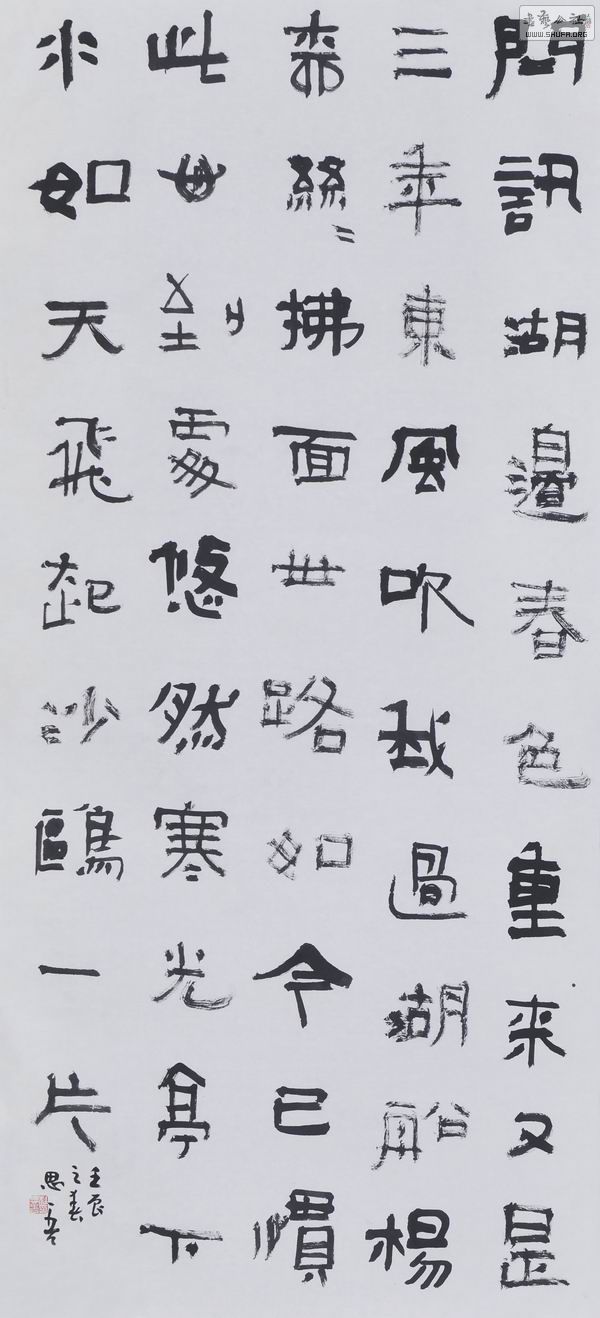 問訊湖邊春色重来又是
三年東風吹我過湖船楊
柳絲〻拂面世路如今已慣
此心到處悠然寒光亭下
水如天飛起沙鷗一片
壬辰
之春
思
WWW.SHUFA.ORG